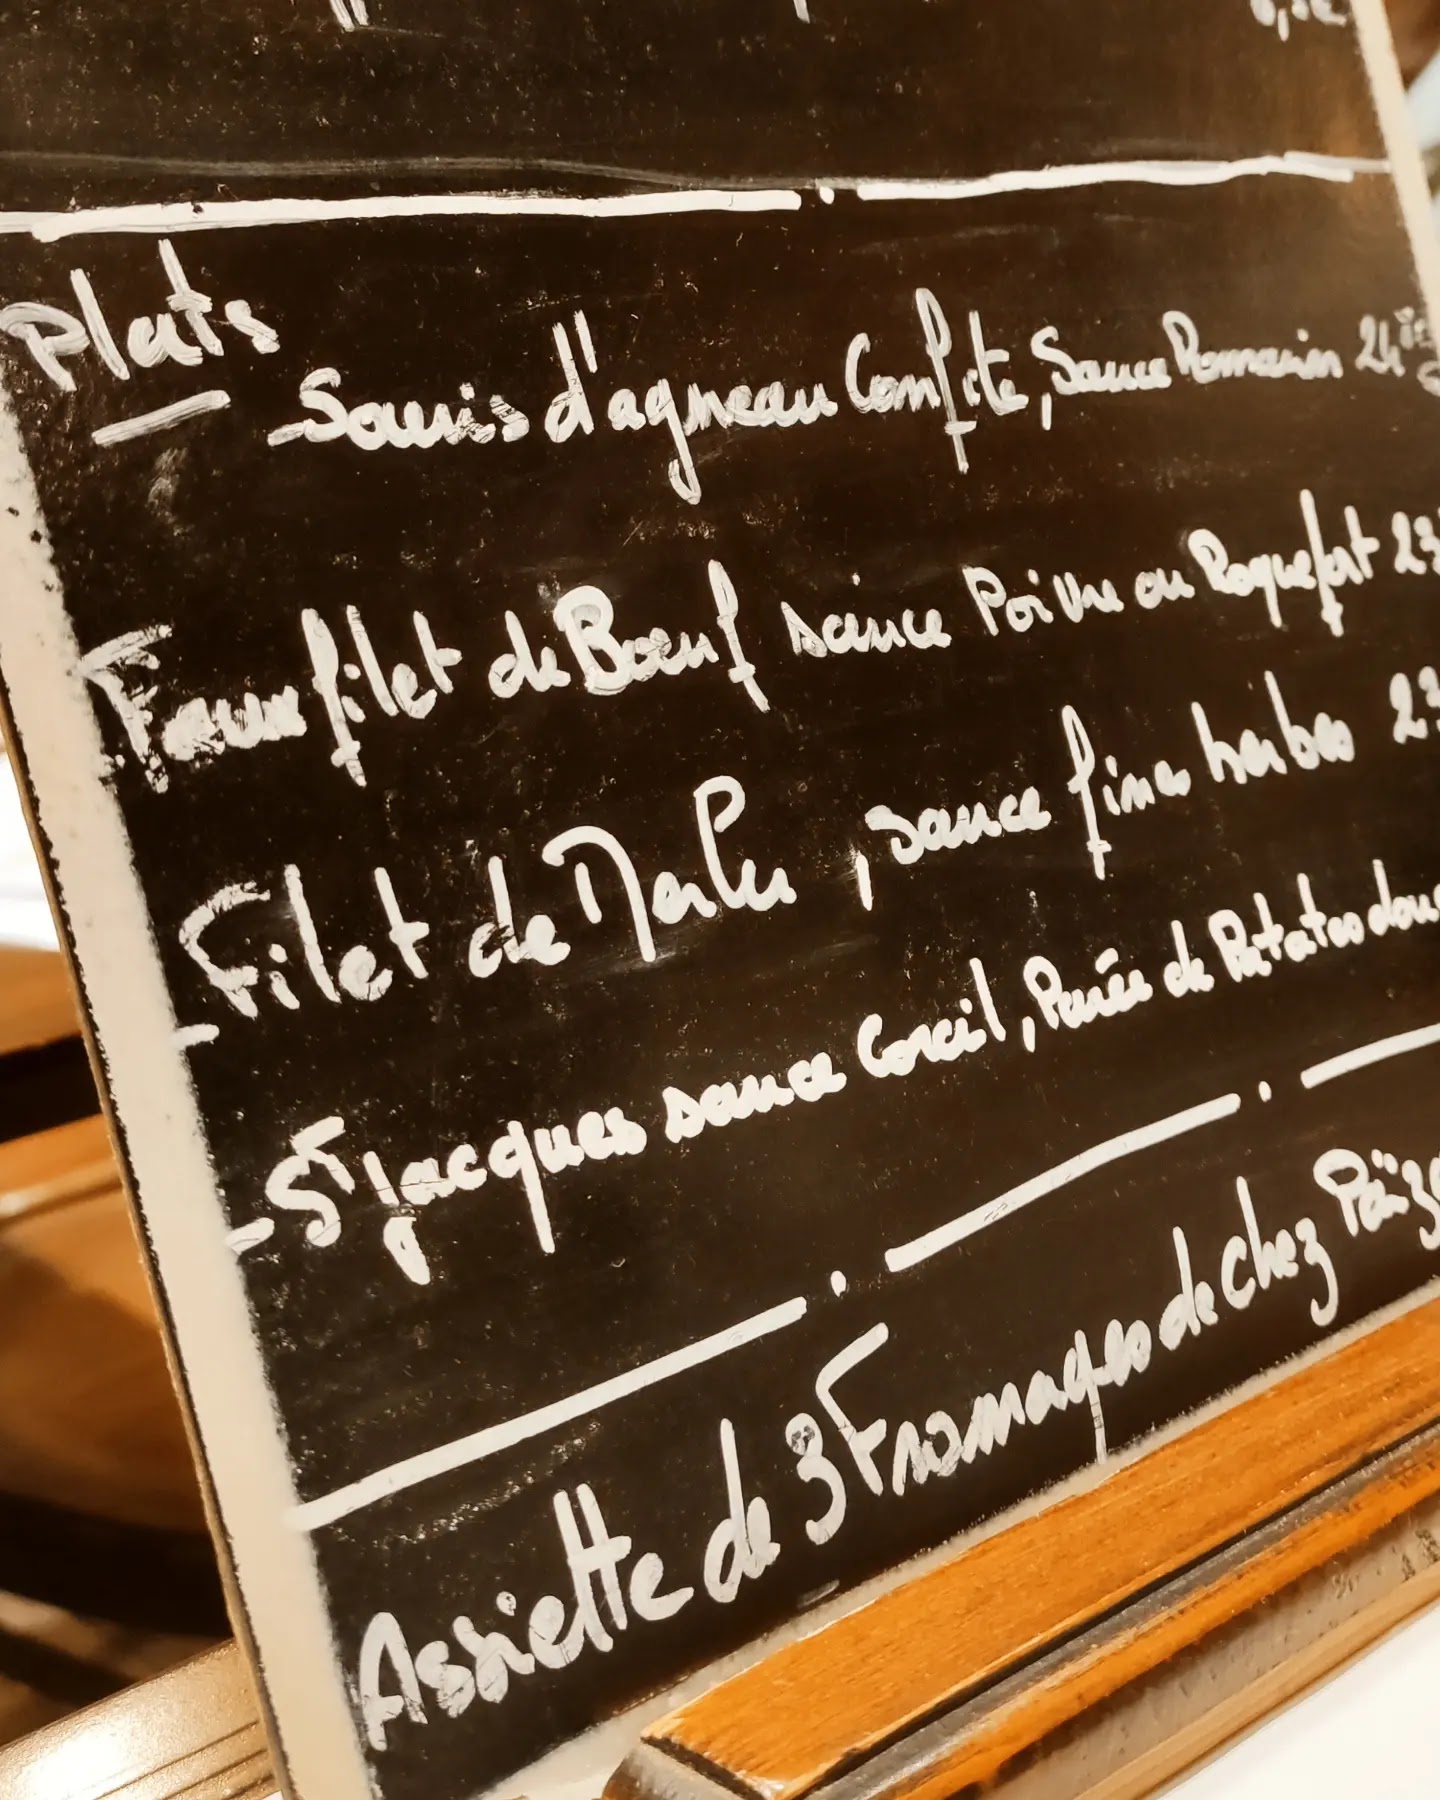 Plats
- Souris d'agneau Confite, Sauce Romarin 24
Faux filet de Bœuf sauce Poivre ou Roquefort 23
- Filet de Merlu, sauce fines herbes 23
- St Jacques sauce Corail, Purée de Patates
Assiette de 3 Fromages de chez